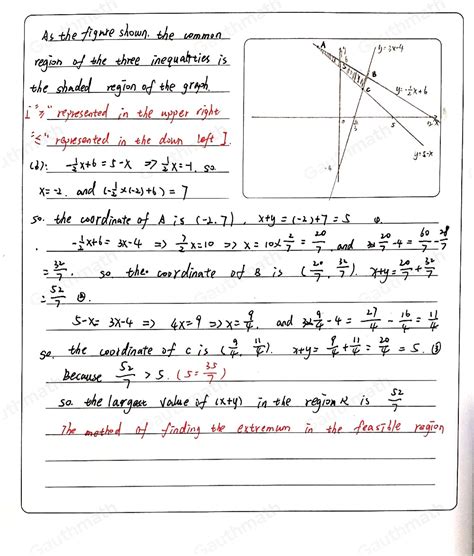 As the figure shown. the common
region of the three inequalities is
the shaded region of the graph
["≥" represented in the upper right
"≤" represented in the down left].
-½x+6 = 5-x ⇒ ½x=-1. so
x=-2. and (-½×(-2)+6) = 7
so. the coordinate of A is (-2, 7), x+y = (-2)+7 = 5
-½x+6 = 3x-4 ⇒ 7/2 x=10 ⇒ x=10×2/7 = 20/7, and 3×20/7-4 = 60/7-28/7
= 32/7. so the coordinate of B is (20/7, 32/7). x+y = 20/7+32/7
= 52/7 ②.
5-x = 3x-4 ⇒ 4x=9 ⇒ x=9/4, and 3×9/4-4 = 27/4-16/4 = 11/4
so, the coordinate of C is (9/4, 11/4). x+y = 9/4+11/4 = 20/4 = 5. ③
Because 52/7 > 5. (5=35/7)
so the largest value of (x+y) in the region R is 52/7
The method of finding the extremum in the feasible region
A
B
C
y=3x-4
y=-½x+6
y=5-x
5
Gauthmath